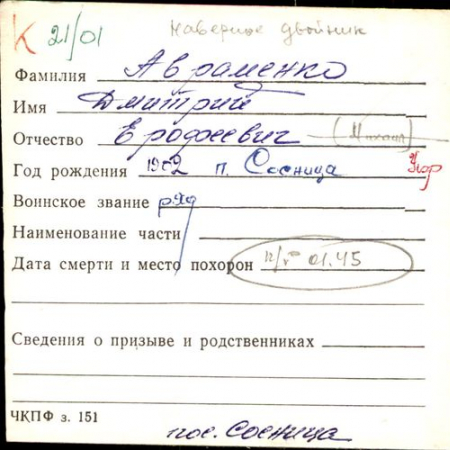 К 21/01 Наверное двойник
Фамилия Авраменко
Имя Дмитрий
Отчество Ерофеевич (Михаил)
Год рождения 1902 п. Сосница
Воинское звание ряд
Наименование части
Дата смерти и место похорон 01.45
Сведения о призыве и родственниках
ЧКПФ з. 151
пос. Сосница